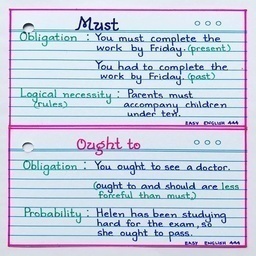 Must
Obligation : You must complete the
work by Friday. (present)
You had to complete the
work by Friday. (past)
Logical necessity : Parents must
(rules) accompany children
under ten.
EASY ENGLISH 444
Ought to
Obligation : You ought to see a doctor.
(ought to and should are less
forceful than must.)
Probability : Helen has been studying
hard for the exam, so
she ought to pass.
EASY ENGLISH 444